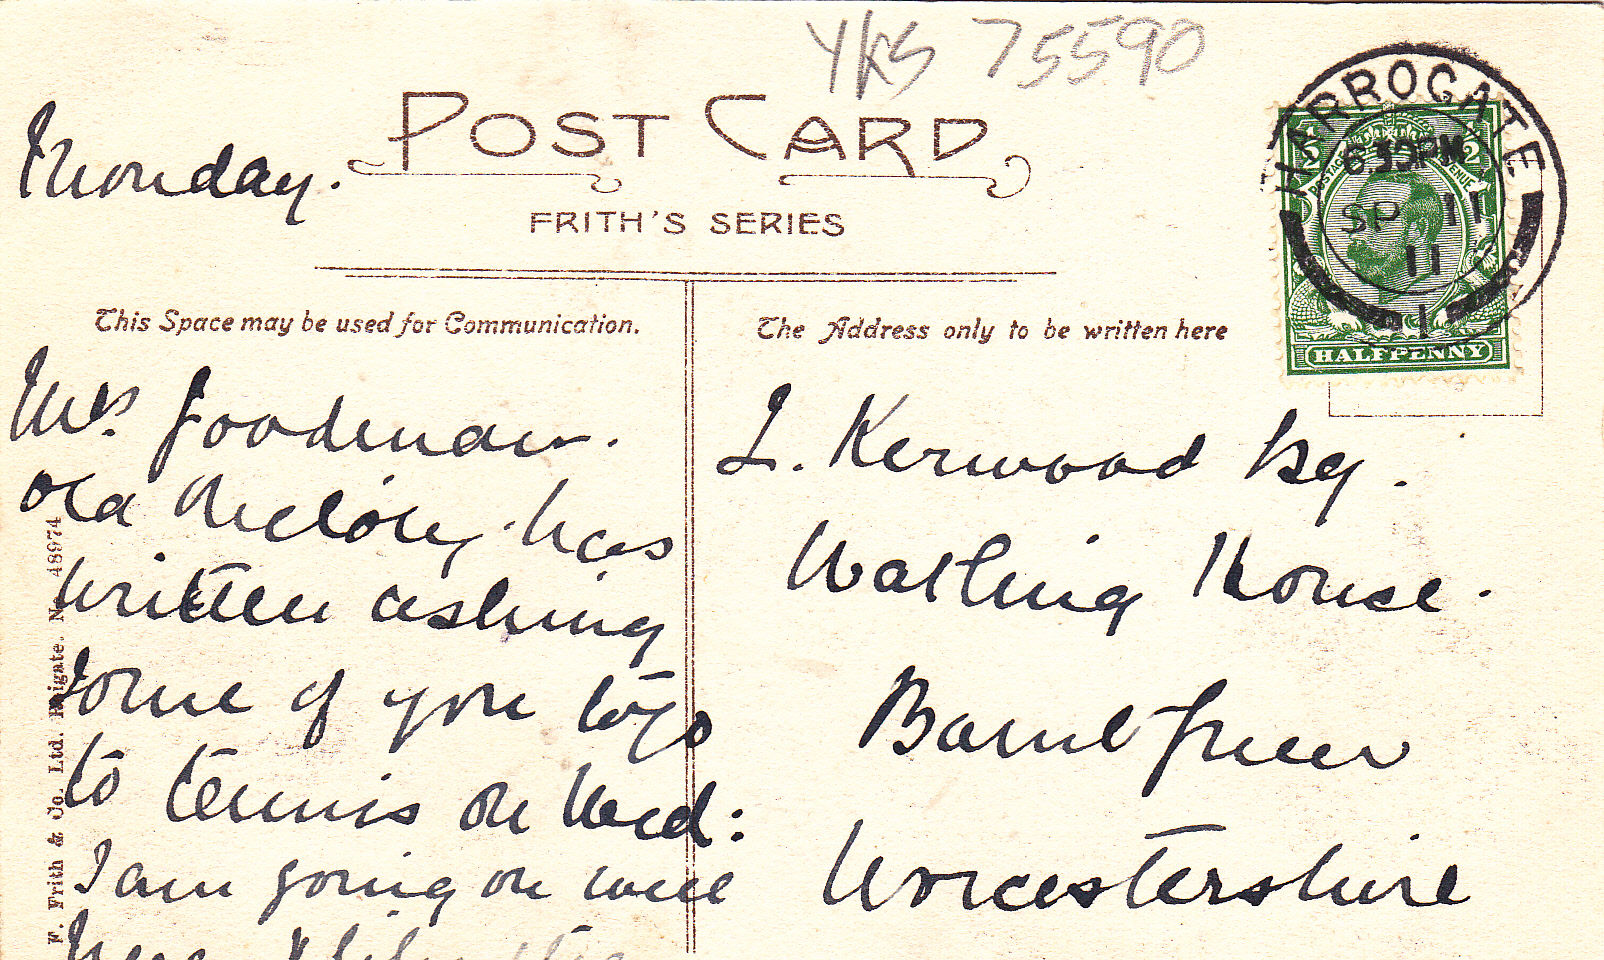 YKS 75590
POST CARD
FRITH'S SERIES
HARROGATE
6.30PM
SP 11
11
1
POSTAGE REVENUE
HALFPENNY
Monday.
This Space may be used for Communication.
The Address only to be written here
Mrs Goodman.
Old Rectory. has
written asking
some of you to go
to tennis on Wed:
I am going on well
here
L. Kerwood Esq.
Watling House.
Barnt Green
Worcestershire
F. Frith & Co. Ltd. Reigate. No. 48974